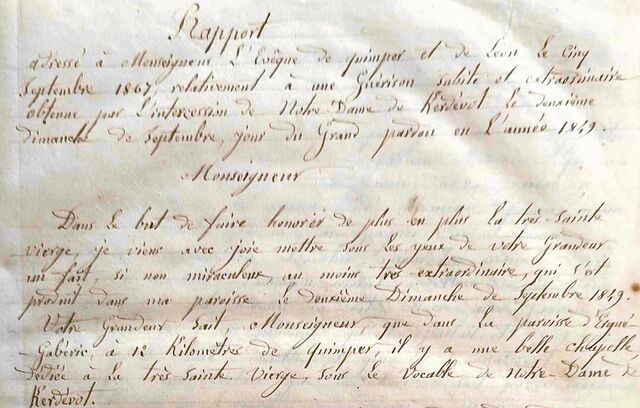 Rapport
adressé à Monseigneur L'Evêque de quimper et de Léon le Cinq
Septembre 1867, relativement à une Guérison subite et extraordinaire
obtenue par l'intercession de Notre Dame de Kerdévot le deuxième
dimanche de Septembre, jour du Grand pardon en l'année 1849.
Monseigneur
Dans le but de faire honorer de plus en plus la très-Sainte
vierge, je viens avec joie mettre sous les yeux de votre Grandeur
un fait si non miraculeux, au moins très extraordinaire, qui s'est
produit dans ma paroisse le deuxième Dimanche de Septembre 1849.
Votre Grandeur Sait, Monseigneur, que dans la paroisse d'Ergué-
Gabéric, à 12 Kilomètres de quimper, il y a une belle chapelle
dédiée à la très-Sainte Vierge, sous le vocable de Notre-Dame de
Kerdévot.